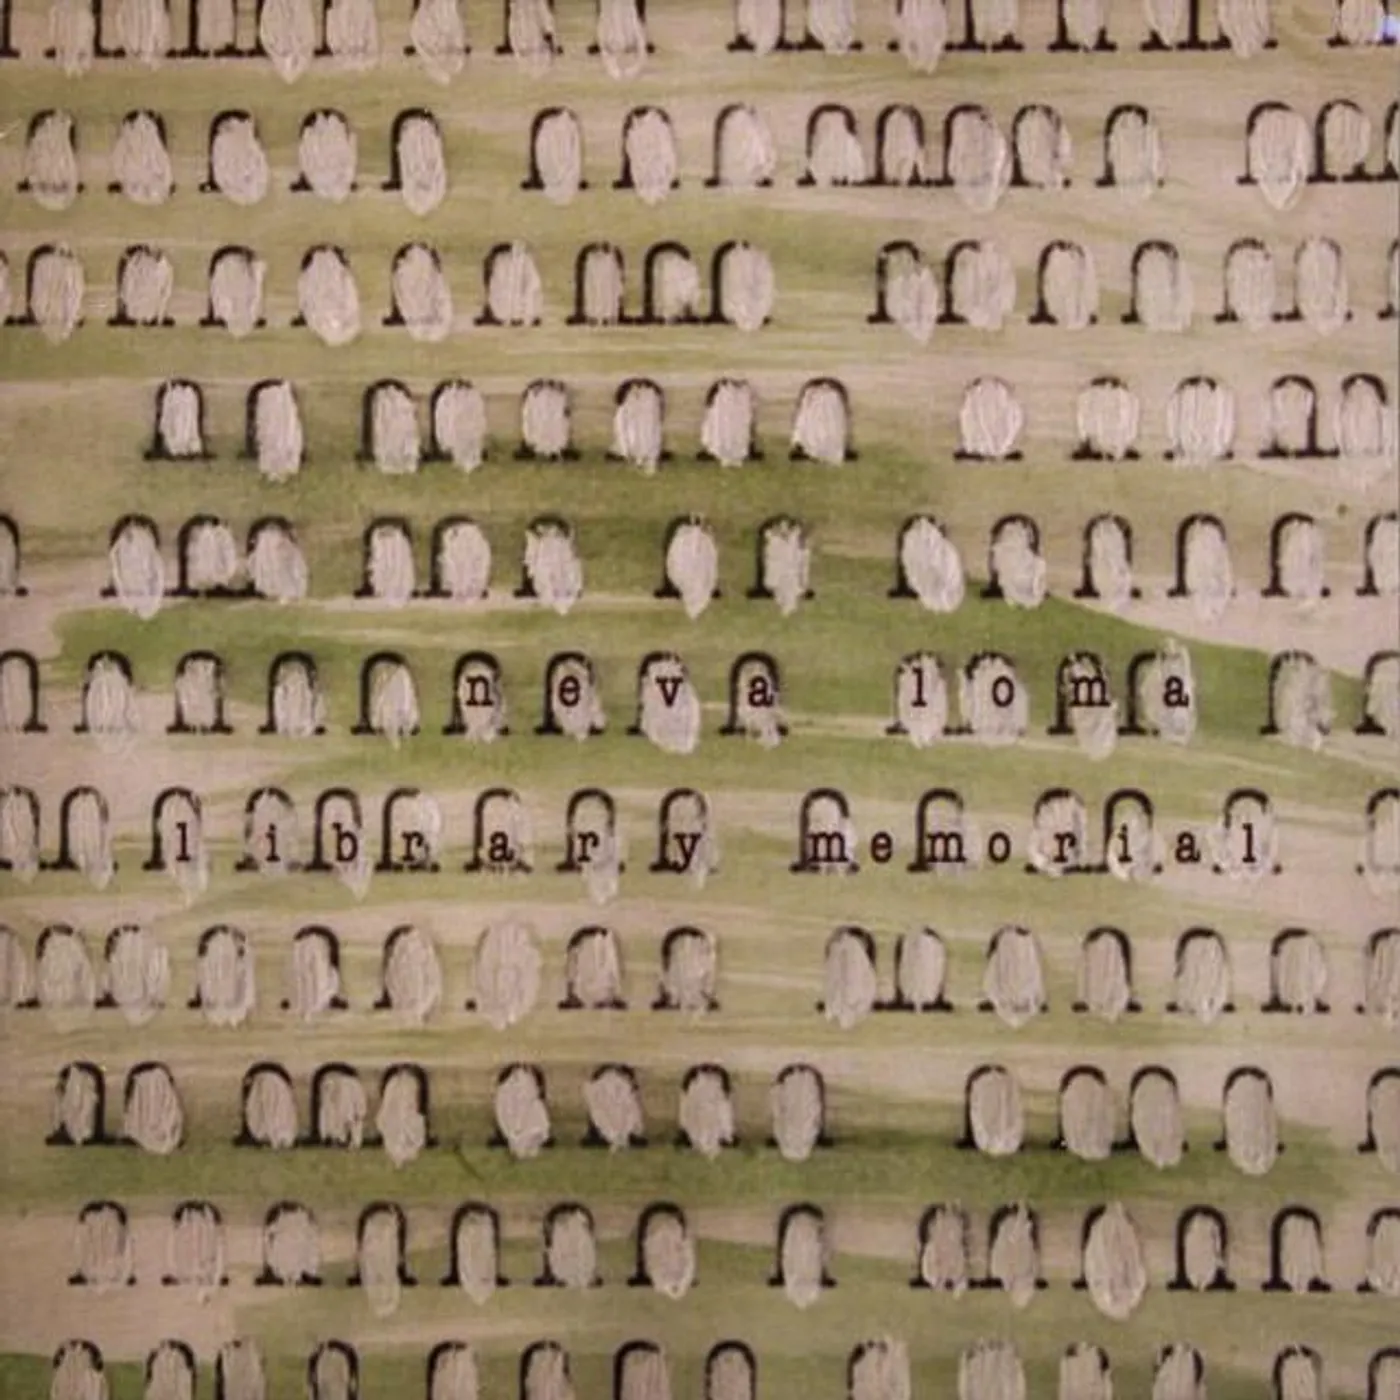 neva loma
library memorial